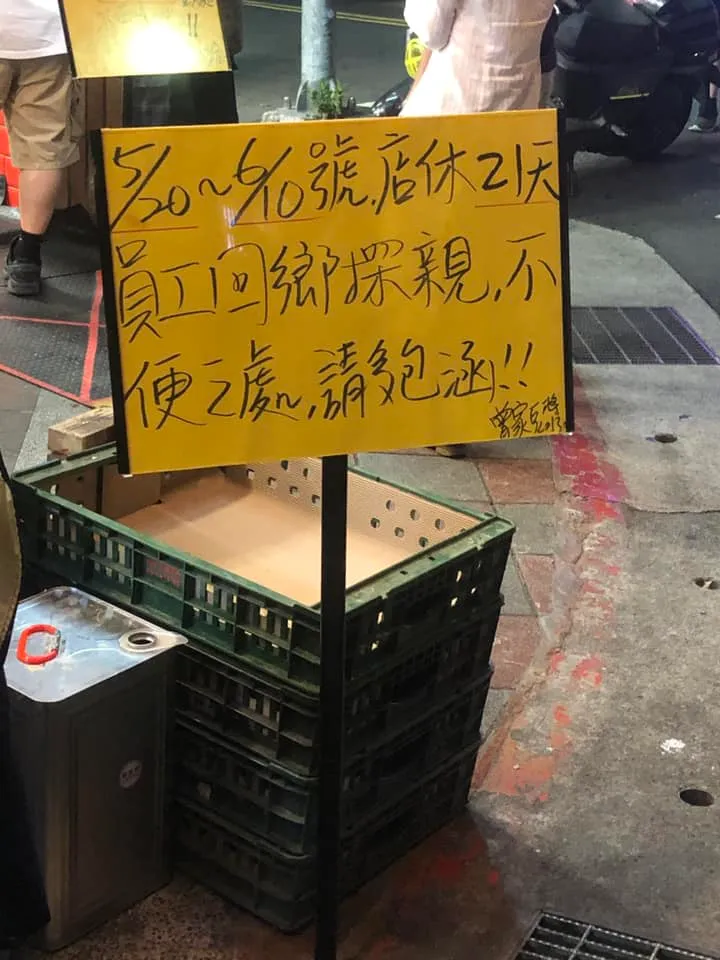 5/20~6/10號,店休21天
員工回鄉探親,不
便之處,請多包涵!!